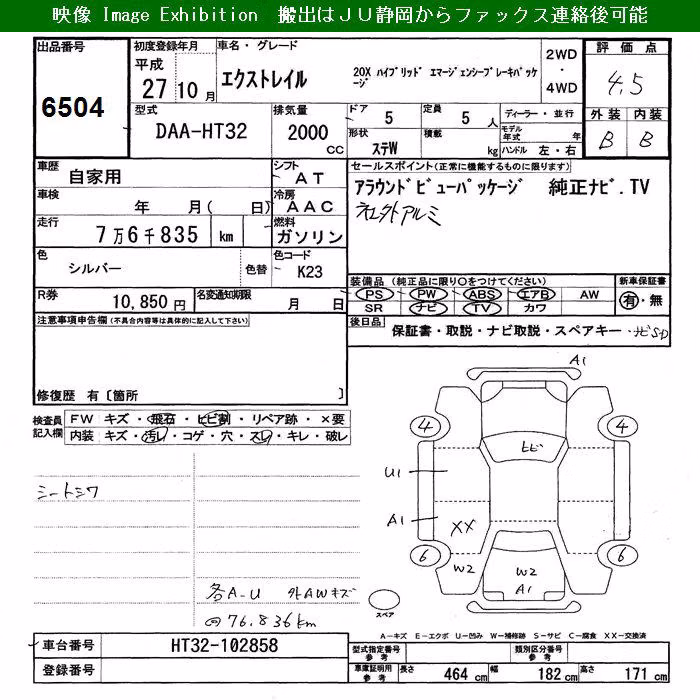 映像 Image Exhibition　搬出はＪＵ静岡からファックス連絡後可能
出品番号
6504
初度登録年月
平成
27 10 月
車名・グレード
エクストレイル
20X ハイブリッド エマージェンシーブレーキパッケ
ージ
2WD
・
4WD
評価点
4.5
外装 内装
B B
型式
DAA-HT32
排気量
2000 CC
ドア
5
定員
5 人
形状
ステW
積載
kg
ディーラー・並行
モデル年式 年
ハンドル 左・右
車歴
自家用
シフト
AT
車検
年 月( 日)
冷房
AAC
走行
7万6千835 km
燃料
ガソリン
色
シルバー
色替
色コード
K23
R券
10,850 円
名変通知期限
月 日
セールスポイント(正常に機能するものに限ります)
アラウンドビューパッケージ 純正ナビ.TV
社外アルミ
装備品 (純正品に限り○をつけてください)
PS PW ABS エアB AW
SR ナビ TV カワ
新車保証書
有・無
後日品
保証書・取説・ナビ取説・スペアキー・ナビSD
注意事項申告欄(不具合内容等は具体的に記入して下さい)
修復歴 有〔箇所 〕
検査員
記入欄
FW キズ・飛石・ヒビ割・リペア跡・×要
内装 キズ・汚レ・コゲ・穴・スレ・キレ・破レ
シートシワ
各A-U 外AWキズ
76.836km
A1
4
4
ヒビ
U1
A1
XX
6
6
W2
W2
A1
スペア
A－キズ E－エクボ U－凹み W－補修跡 S－サビ C－腐食 XX－交換済
車台番号
HT32-102858
登録番号
型式指定番号
参考
類別区分番号
参考
車庫証明用
参考
長さ 464 cm 幅 182 cm 高さ 171 cm